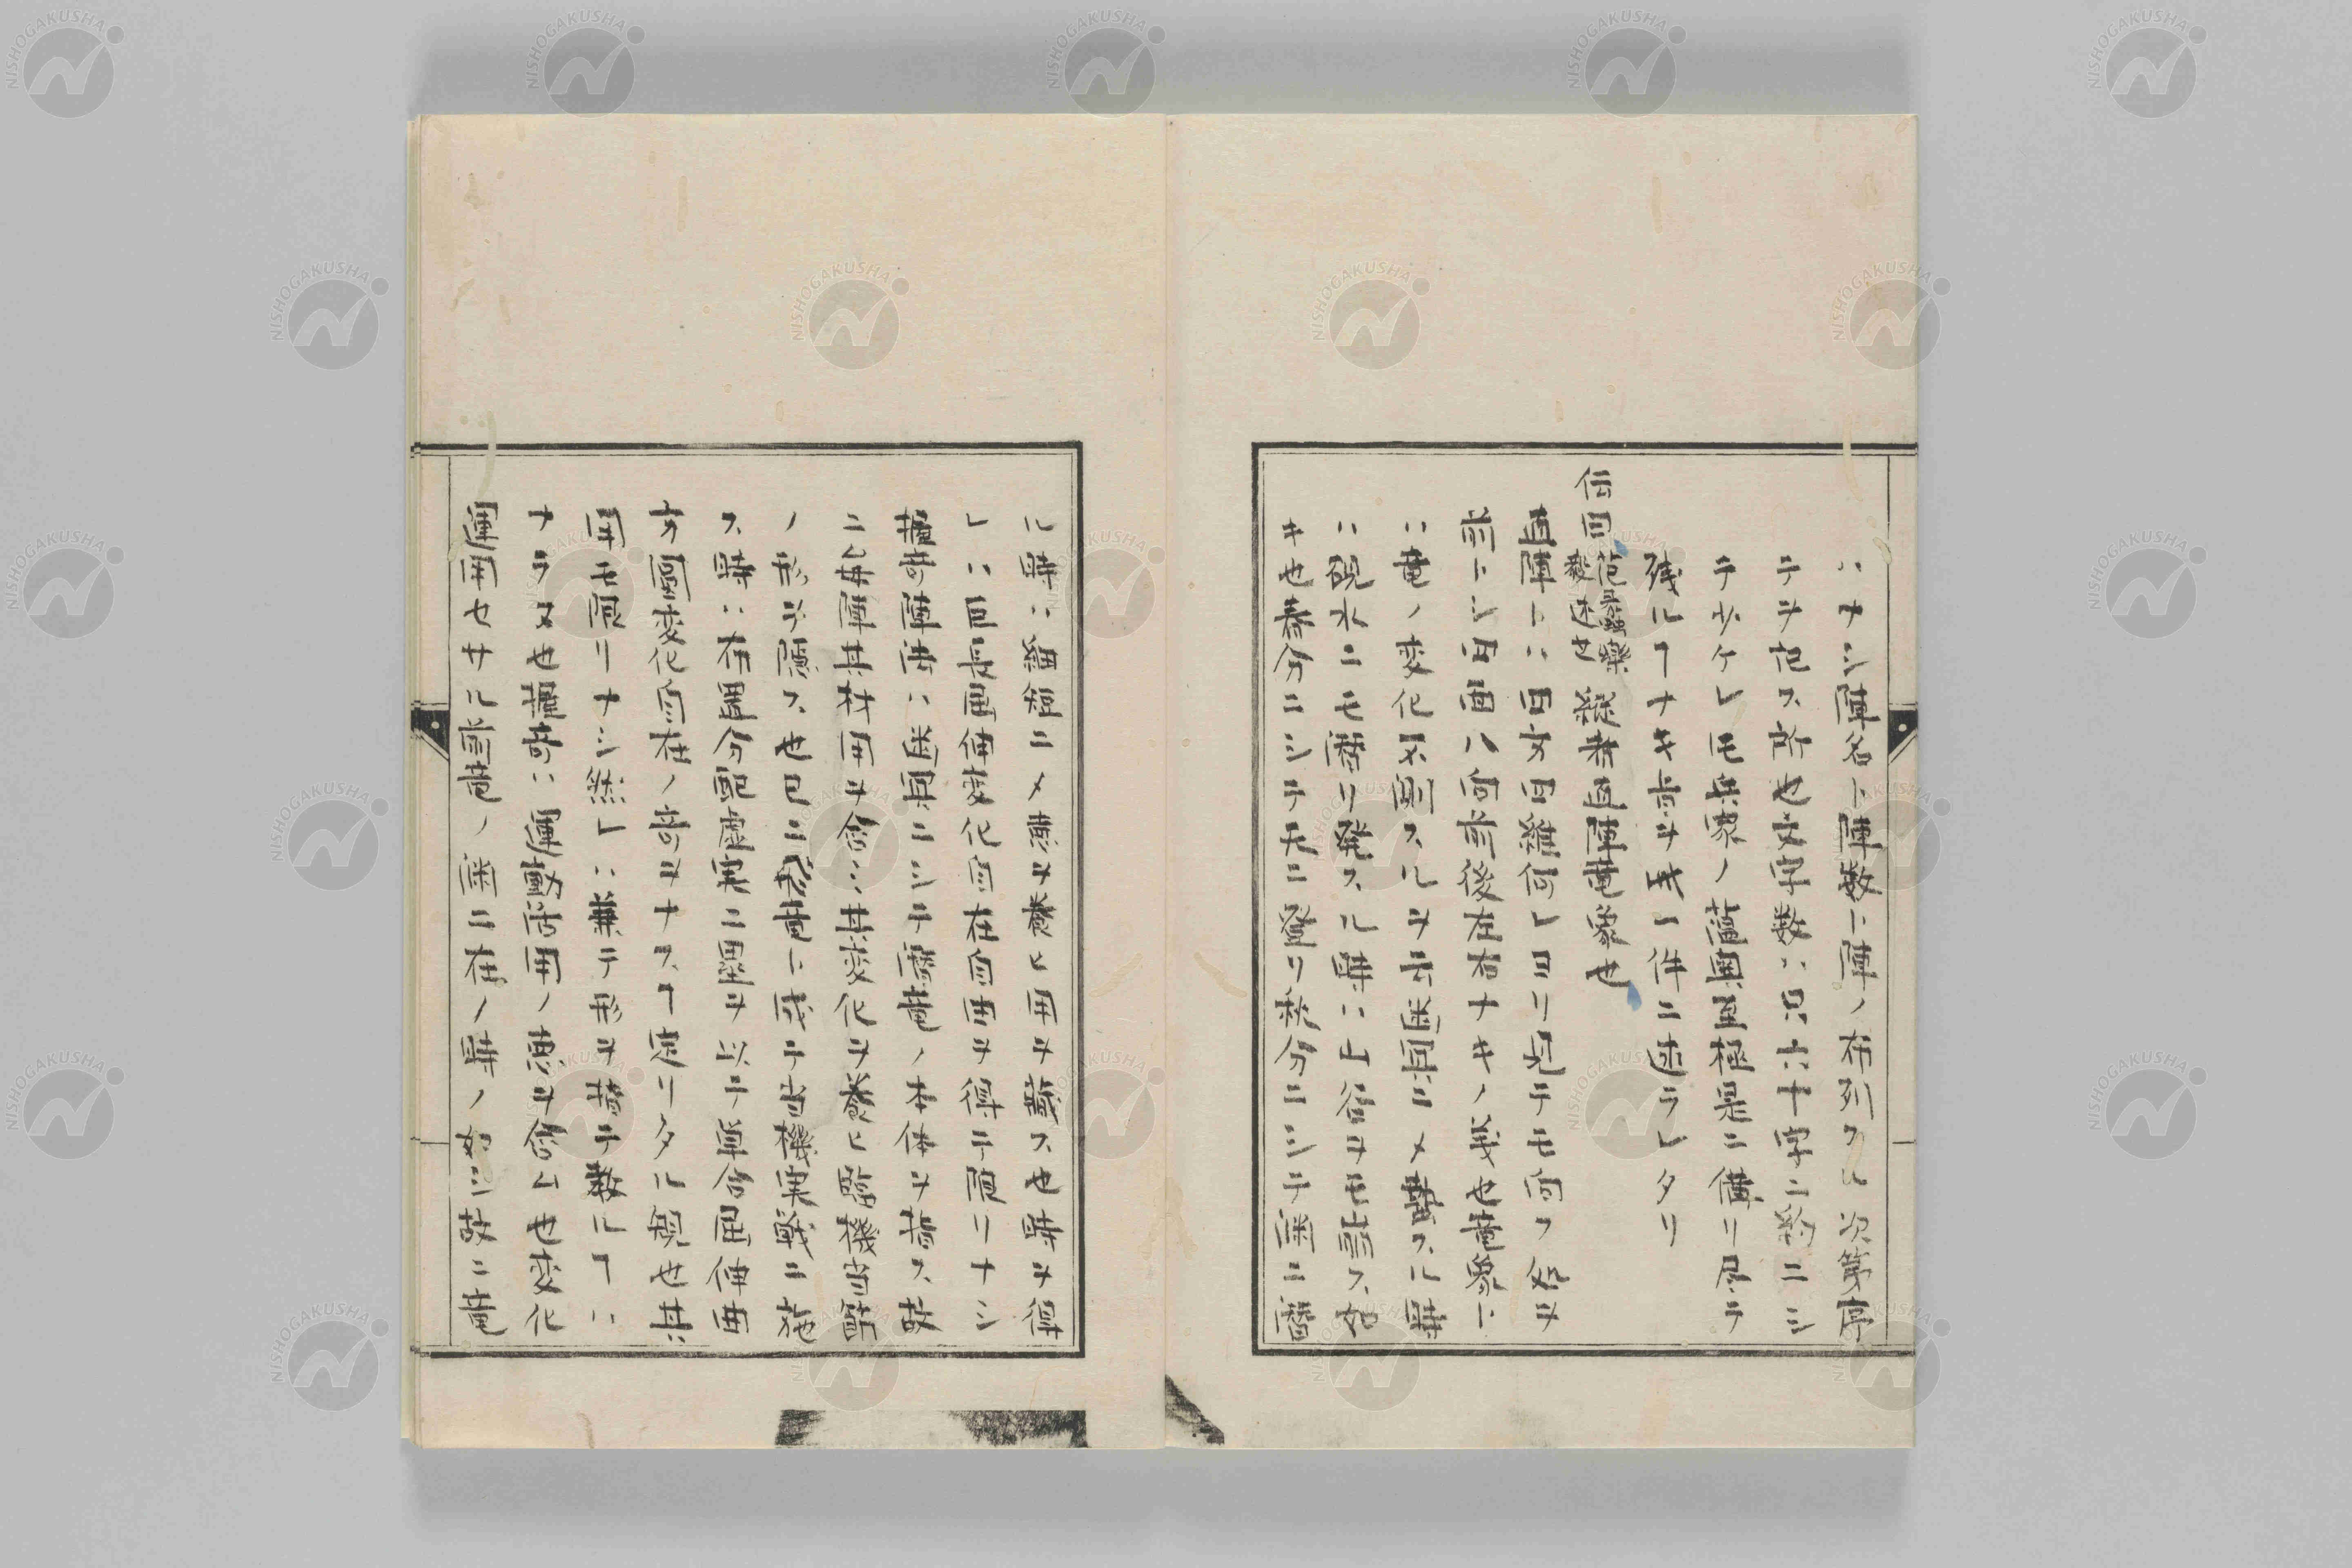 ハナシ陣名ト陣数ト陣ノ布列スル次第序
テヲ記ス所也文字数ハ只六十字ニ約ニシ
テ少ケレ𪜈兵家ノ蘊奥至極是ニ備リ尽テ
残ルヿナキ寿ヲ我一件ニ述ラレタリ
伝回範蠡樂毅述也 縦者直陣竜象也
直陣トハ四方四維何レヨリ見テモ向フ処ヲ
前トシ四面八向前後左右ナキノ義也竜象ト
ハ竜ノ変化不測スルヲ云幽冥ニメ蟄スル時
ハ硯水ニモ潜リ発スル時ハ上谷ヲモ崩ス如
キ也春分ニシテ天ニ登リ秋分ニシテ淵ニ潜
ル時ハ細短ニメ恵ヲ養ヒ用ヲ蔵ス也時ヲ得
レハ巨長屈伸変化自在自由ヲ得テ限リナシ
握奇陣法ハ幽冥ニシテ潜竜ノ本体ヲ指ス故
ニ毎陣其材用ヲ含ミ其変化ヲ養ヒ臨機当節
ノ形ヲ隠ス也已ニ竜ト成テ当機実戦ニ施
ス時ハ布置分配虚実ニ墨ヲ以テ単合屈伸曲
方圓変化自在ノ奇ヲナスヿ定リタル規也其
用モ限リナシ然レハ兼テ形ヲ指テ数ルヿハ
ナラヌ也握奇ハ運動活用ノ恵ヲ含ム也変化
運用セサル前竜ノ淵ニ在ノ時ノ如シ故ニ竜
NISHOGAKUSHA